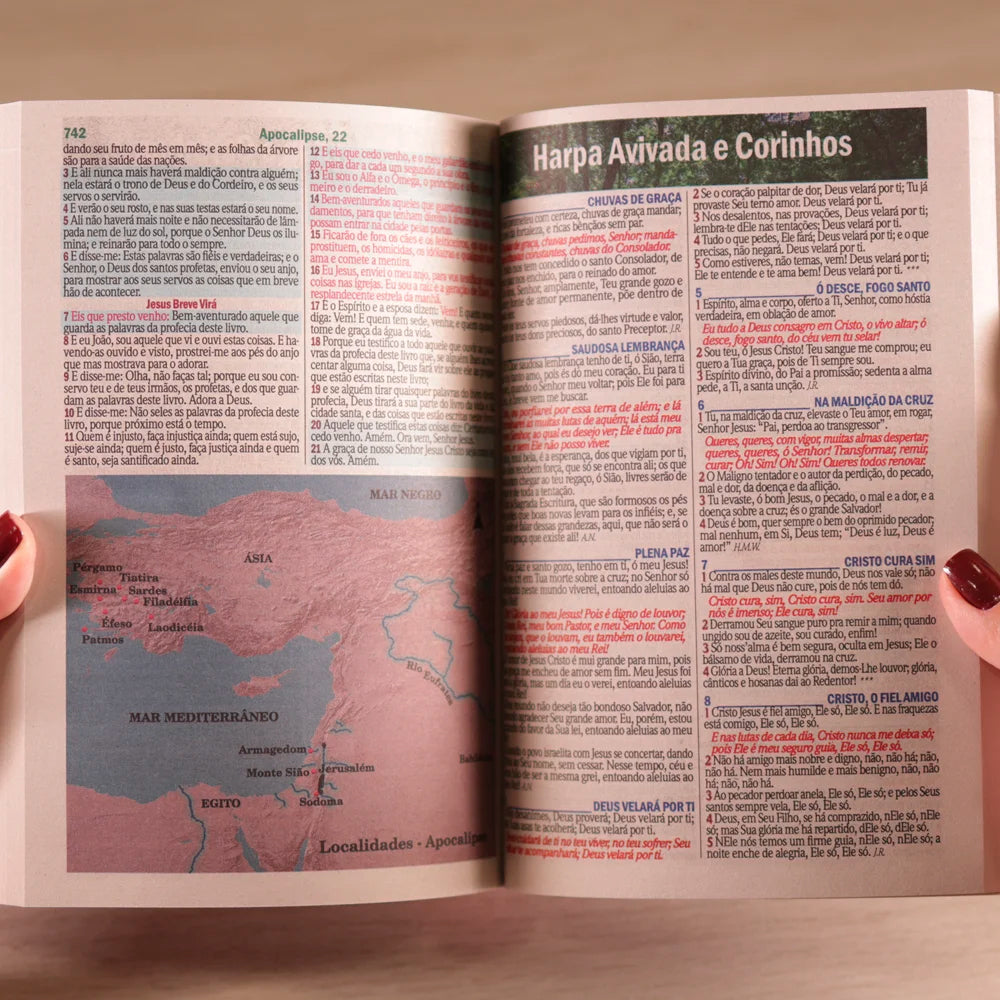 742
Apocalipse, 22
dando seu fruto de mês em mês; e as folhas da árvore
são para a saúde das nações.
3 E ali nunca mais haverá maldição contra alguém;
nela estará o trono de Deus e do Cordeiro, e os seus
servos o servirão.
4 E verão o seu rosto, e nas suas testas estará o seu nome.
5 Ali não haverá mais noite e não necessitarão de lâm-
pada nem de luz do sol, porque o Senhor Deus os ilu-
mina; e reinarão para todo o sempre.
6 E disse-me: Estas palavras são fiéis e verdadeiras; e o
Senhor, o Deus dos santos profetas, enviou o seu anjo,
para mostrar aos seus servos as coisas que em breve
hão de acontecer.
Jesus Breve Virá
7 Eis que presto venho: Bem-aventurado aquele que
guarda as palavras da profecia deste livro.
8 E eu João, sou aquele que vi e ouvi estas coisas. E ha-
vendo-as ouvido e visto, prostrei-me aos pés do anjo
que mas mostrava para o adorar.
9 E disse-me: Olha, não faças tal; porque eu sou con-
servo teu e de teus irmãos, os profetas, e dos que guar-
dam as palavras deste livro. Adora a Deus.
10 E disse-me: Não seles as palavras da profecia deste
livro, porque próximo está o tempo.
11 Quem é injusto, faça injustiça ainda; quem está sujo,
suje-se ainda; quem é justo, faça justiça ainda e quem
é santo, seja santificado ainda.
12 E eis que cedo venho, e o meu galardão
go, para dar a cada um segundo a sua obra.
13 Eu sou o Alfa e o Ômega, o princípio e o
meiro e o derradeiro.
14 Bem-aventurados aqueles que guardam os
damentos, para que tenham direito à árvore
possam entrar na cidade pelas portas.
15 Ficarão de fora os cães e os feiticeiros, os que se
prostituem, os homicidas, os idólatras e qualquer
ama e comete a mentira.
16 Eu Jesus, enviei o meu anjo, para vos testificar
coisas nas Igrejas. Eu sou a raiz e a geração de
resplandecente estrela da manhã.
17 E o Espírito e a esposa dizem: Vem! E quem
diga: Vem! E quem tem sede, venha; e quem
tome de graça da água da vida.
18 Porque eu testifico a todo aquele que ouvir as pala-
vras da profecia deste livro que, se alguém lhes acres-
centar alguma coisa, Deus fará vir sobre ele as
que estão escritas neste livro;
19 e se alguém tirar quaisquer palavras do livro
profecia, Deus tirará a sua parte do livro da vida
cidade santa, e das coisas que estão escritas
20 Aquele que testifica estas coisas diz:
cedo venho. Amém. Ora vem, Senhor Jesus.
21 A graça de nosso Senhor Jesus Cristo seja
dos vós. Amém.
MAR NEGRO
ÁSIA
Pérgamo
Tiatira
Esmirna
Sardes
Filadélfia
Éfeso
Laodicéia
Patmos
Rio Eufrates
MAR MEDITERRÂNEO
Armagedom
Monte Sião
Jerusalém
Sodoma
EGITO
Localidades - Apocalipse
Harpa Avivada e Corinhos
CHUVAS DE GRAÇA
com certeza, chuvas de graça mandar;
fortaleza, e ricas bênçãos sem par.
de graça, chuvas pedimos, Senhor; manda-
constantes, chuvas do Consolador.
nos tem concedido o santo Consolador, de
nos enchido, para o reinado do amor.
Senhor, amplamente, Teu grande gozo e
fonte de amor permanente, põe dentro de
teus servos piedosos, dá-lhes virtude e valor,
teus dons preciosos, do santo Preceptor. J.R.
SAUDOSA LEMBRANÇA
saudosa lembrança tenho de ti, ó Sião, terra
tanto amo, pois és do meu coração. Eu para ti
quando o Senhor meu voltar; pois Ele foi para
breve vem me buscar.
por essa terra de além; e lá
as muitas lutas de aquém; lá está meu
Senhor, ao qual eu desejo ver; Ele é tudo pra
sem Ele não posso viver.
bela, é a esperança, dos que vigiam por ti,
recebem força, que só se encontra ali; os que
chegar ao teu regaço, ó Sião, livres serão de
toda a tentação.
Sagrada Escritura, que são formosos os pés
que boas novas levam para os infiéis; e, se
falar dessas grandezas, aqui, que não será o
graça que existe ali! A.N.
PLENA PAZ
paz e santo gozo, tenho em ti, ó meu Jesus!
em Tua morte sobre a cruz; no Senhor só
neste mundo viverei, entoando aleluias ao
Glória ao meu Jesus! Pois é digno de louvor;
meu Rei, meu bom Pastor, e meu Senhor. Como
que o louvam, eu também o louvarei,
entoando aleluias ao meu Rei!
amor de Jesus Cristo é mui grande para mim, pois
graça me encheu de amor sem fim. Meu Jesus foi
glória, mas um dia eu o verei, entoando aleluias
mundo não deseja tão bondoso Salvador, não
agradecer Seu grande amor. Eu, porém, estou
do favor da Sua lei, entoando aleluias ao meu
o povo israelita com Jesus se concertar, dando
Seu nome, sem cessar. Nesse tempo, céu e
de ser a mesma grei, entoando aleluias ao
A.N.
DEUS VELARÁ POR TI
desanimes, Deus proverá; Deus velará por ti;
asas te acolherá; Deus velará por ti.
cuidará de ti no teu viver, no teu sofrer; Seu
te acompanhará; Deus velará por ti.
2 Se o coração palpitar de dor, Deus velará por ti; Tu já
provaste Seu terno amor. Deus velará por ti.
3 Nos desalentos, nas provações, Deus velará por ti;
lembra-te dEle nas tentações; Deus velará por ti.
4 Tudo o que pedes, Ele fará; Deus velará por ti; e o que
precisas, não negará. Deus velará por ti.
5 Como estiveres, não temas, vem! Deus velará por ti;
Ele te entende e te ama bem! Deus velará por ti. ***
5 Ó DESCE, FOGO SANTO
1 Espírito, alma e corpo, oferto a Ti, Senhor, como hóstia
verdadeira, em oblação de amor.
Eu tudo a Deus consagro em Cristo, o vivo altar; ó
desce, fogo santo, do céu vem tu selar!
2 Sou teu, ó Jesus Cristo! Teu sangue me comprou; eu
quero a Tua graça, pois de Ti sempre sou.
3 Espírito divino, do Pai a promissão; sedenta a alma
pede, a Ti, a santa unção. J.R.
6 NA MALDIÇÃO DA CRUZ
1 Tu, na maldição da cruz, elevaste o Teu amor, em rogar,
Senhor Jesus: "Pai, perdoa ao transgressor".
Queres, queres, com vigor, muitas almas despertar;
queres, queres, ó Senhor! Transformar, remir,
curar; Oh! Sim! Oh! Sim! Queres todos renovar.
2 O Maligno tentador e o autor da perdição, do pecado,
mal e dor, da doença e da aflição.
3 Tu levaste, ó bom Jesus, o pecado, o mal e a dor, e a
doença sobre a cruz; és o grande Salvador!
4 Deus é bom, quer sempre o bem do oprimido pecador;
mal nenhum, em Si, Deus tem; "Deus é luz, Deus é
amor!" H.M.W.
7 CRISTO CURA SIM
1 Contra os males deste mundo, Deus nos vale só; não
há mal que Deus não cure, pois de nós tem dó.
Cristo cura, sim, Cristo cura, sim. Seu amor por
nós é imenso; Ele cura, sim!
2 Derramou Seu sangue puro pra remir a mim; quando
ungido sou de azeite, sou curado, enfim!
3 Só noss'alma é bem segura, oculta em Jesus; Ele o
bálsamo de vida, derramou na cruz.
4 Glória a Deus! Eterna glória, demos-lhe louvor; glória,
cânticos e hosanas dai ao Redentor! ***
8 CRISTO, O FIEL AMIGO
1 Cristo Jesus é fiel amigo, Ele só, Ele só. E nas fraquezas
está comigo, Ele só, Ele só.
E nas lutas de cada dia, Cristo nunca me deixa só;
pois Ele é meu seguro guia, Ele só, Ele só.
2 Não há amigo mais nobre e digno, não, não há; não,
não há. Nem mais humilde e mais benigno, não, não
há; não, não há.
3 Ao pecador perdoar anela, Ele só, Ele só; e pelos Seus
santos sempre vela, Ele só, Ele só.
4 Deus, em Seu Filho, se há comprazido, nEle só, nEle
só; mas Sua glória me há repartido, dEle só, dEle só.
5 NEle nós temos um firme guia, nEle só, nEle só; a
noite enche de alegria, Ele só, Ele só. J.R.